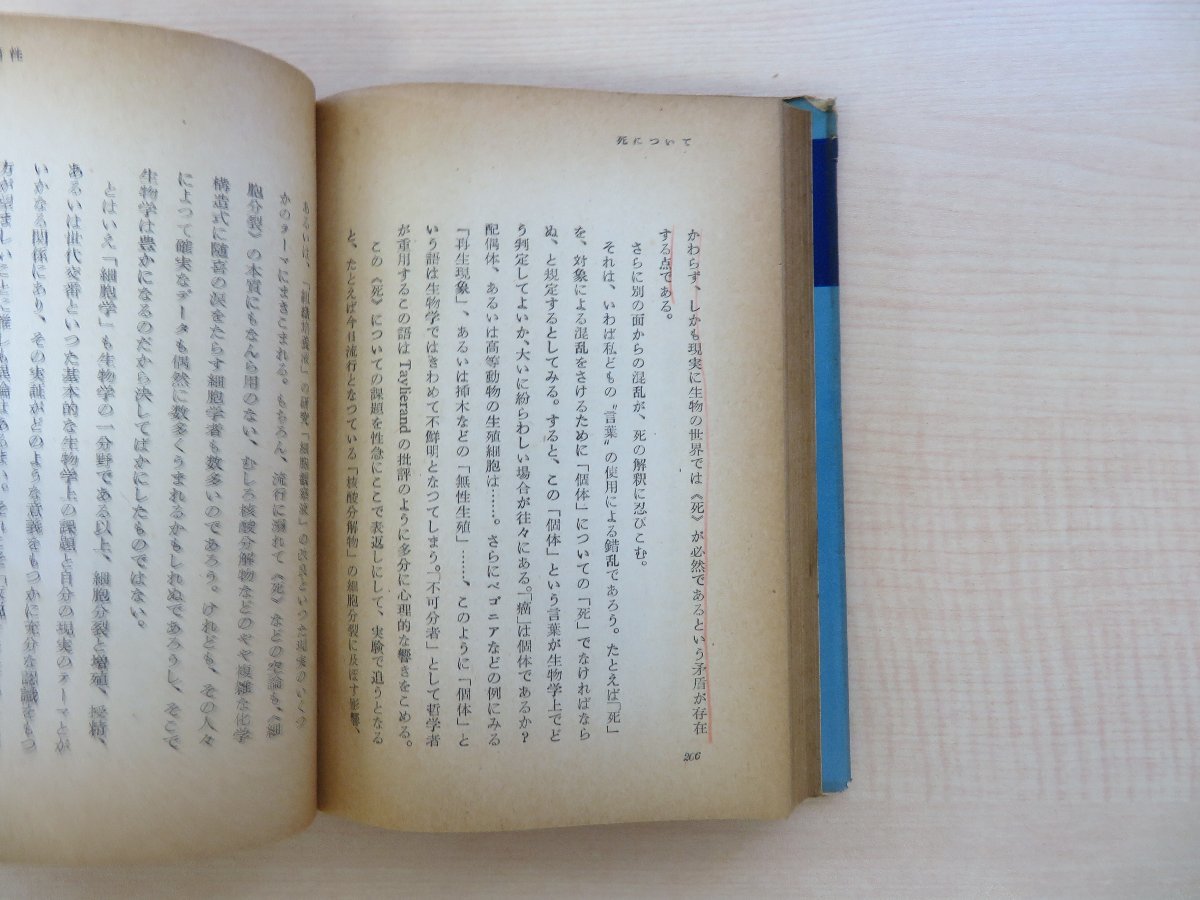 死について
かわらず、しかも現実に生物の世界では《死》が必然であるという矛盾が存在
する点である。
さらに別の面からの混乱が、死の解釈に忍びこむ。
それは、いわば私どもの〝言葉〟の使用による錯乱であろう。たとえば「死」
を、対象による混乱をさけるために「個体」についての「死」でなければなら
ぬ、と規定するとしてみる。すると、この「個体」という言葉が生物学上でど
う判定してよいか、大いに紛らわしい場合が往々にある。「癌」は個体であるか？
配偶体、あるいは高等動物の生殖細胞は……。さらにベゴニアなどの例にみる
「再生現象」、あるいは挿木などの「無性生殖」……、このように「個体」と
いう語は生物学ではきわめて不鮮明となつてしまう。「不可分者」として哲学者
が重用するこの語は Taylierand の批評のように多分に心理的な響きをこめる。
この《死》についての課題を性急にここで表返しにして、実験で追うとなる
と、たとえば今日流行となつている「核酸分解物」の細胞分裂に及ぼす影響、
206
性
あるいは、「組織培養液」の研究「細胞観察液」の改良といつた現実のいくつ
かのテーマにまきこまれる。もちろん、流行に溺れて《死》などの空論も、《細
胞分裂》の本質にもなんら用のない、むしろ核酸分解物などのやや複雑な化学
構造式に随喜の涙をたらす細胞学者も数多いのであろう。けれども、その人々
によつて確実なデータも偶然に数多くうまれるかもしれぬであろうし、そこで
生物学は豊かになるのだから決してばかにしたものではない。
とはいえ「細胞学」も生物学の一分野である以上、細胞分裂と増殖、授精、
あるいは世代交番といつた基本的な生物学上の課題と自分の現実のテーマとが
いかなる関係にあり、その実証がどのような意義をもつかに充分な認識をもつ
方が望ましいことに誰しも異論はあるまい。